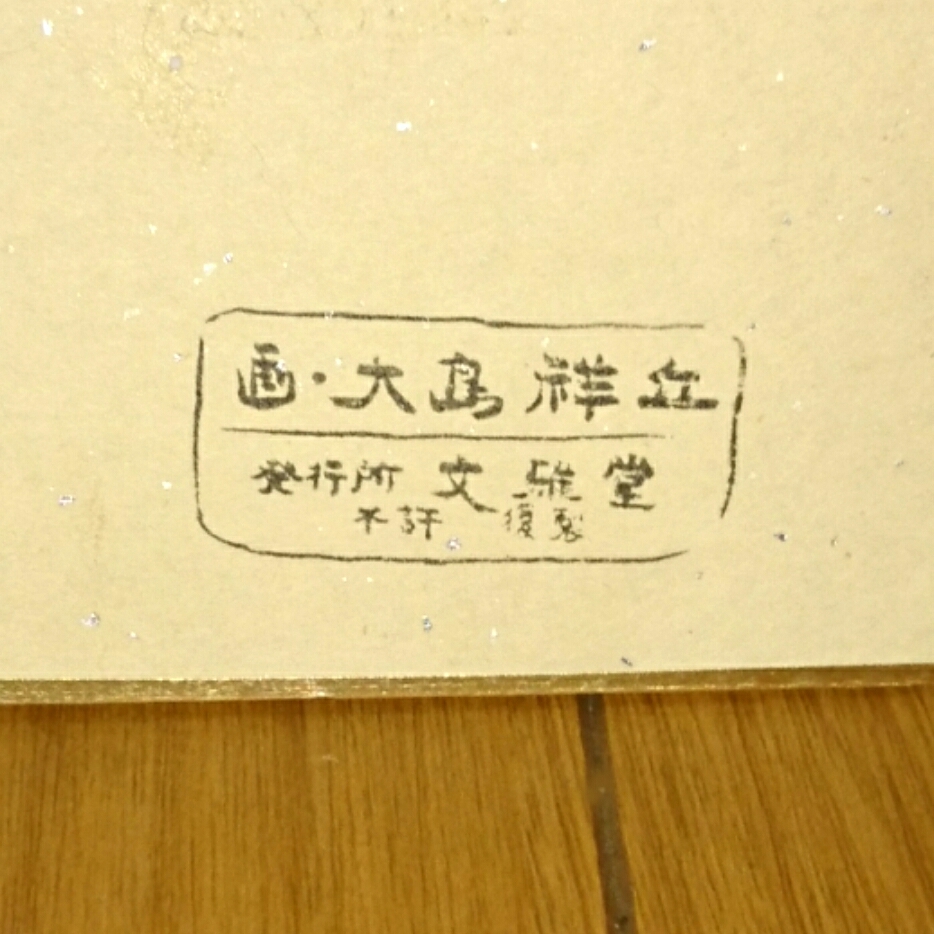 画・大島祥丘
発行所 文雅堂
不許 複製